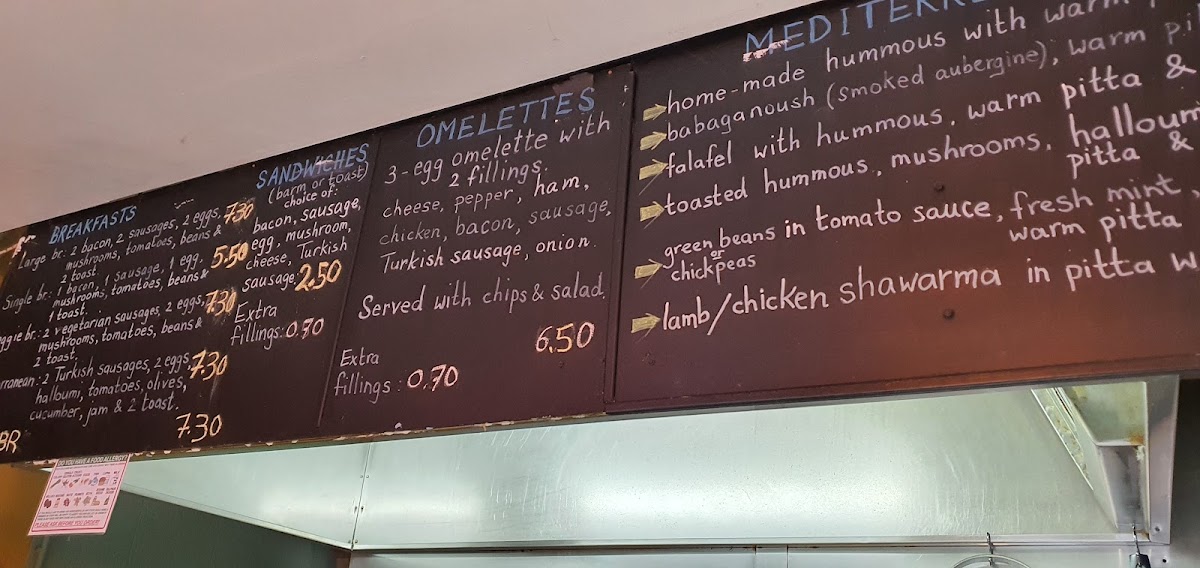 BREAKFASTS
Large br: 2 bacon, 2 sausages, 2 eggs, 7.30
mushrooms, tomatoes, beans &
2 toast.
Single br: 1 bacon, 1 sausage, 1 egg, 5.50
mushrooms, tomatoes, beans &
1 toast.
ggie br.: 2 vegetarian sausages, 2 eggs, 7.30
mushrooms, tomatoes, beans &
2 toast.
rranean: 2 Turkish sausages, 2 eggs, 7.30
halloumi, tomatoes, olives,
cucumber, jam & 2 toast.
BR 7.30
SANDWICHES
(barm or toast)
choice of:
bacon, sausage,
egg, mushroom,
cheese, Turkish
sausage, 2.50
Extra
fillings: 0.70
OMELETTES
3-egg omelette with
2 fillings.
cheese, pepper, ham,
chicken, bacon, sausage,
Turkish sausage, onion.
Served with chips & salad.
6.50
Extra
fillings: 0.70
MEDITERR
home-made hummous with warm
babaganoush (smoked aubergine), warm pi
falafel with hummous, warm pitta &
toasted hummous, mushrooms, halloum
pitta &
green beans in tomato sauce, fresh mint
or
chickpeas
warm pitta
lamb/chicken shawarma in pitta w
DO YOU HAVE A FOOD ALLERGY?
PLEASE ASK BEFORE YOU ORDER!